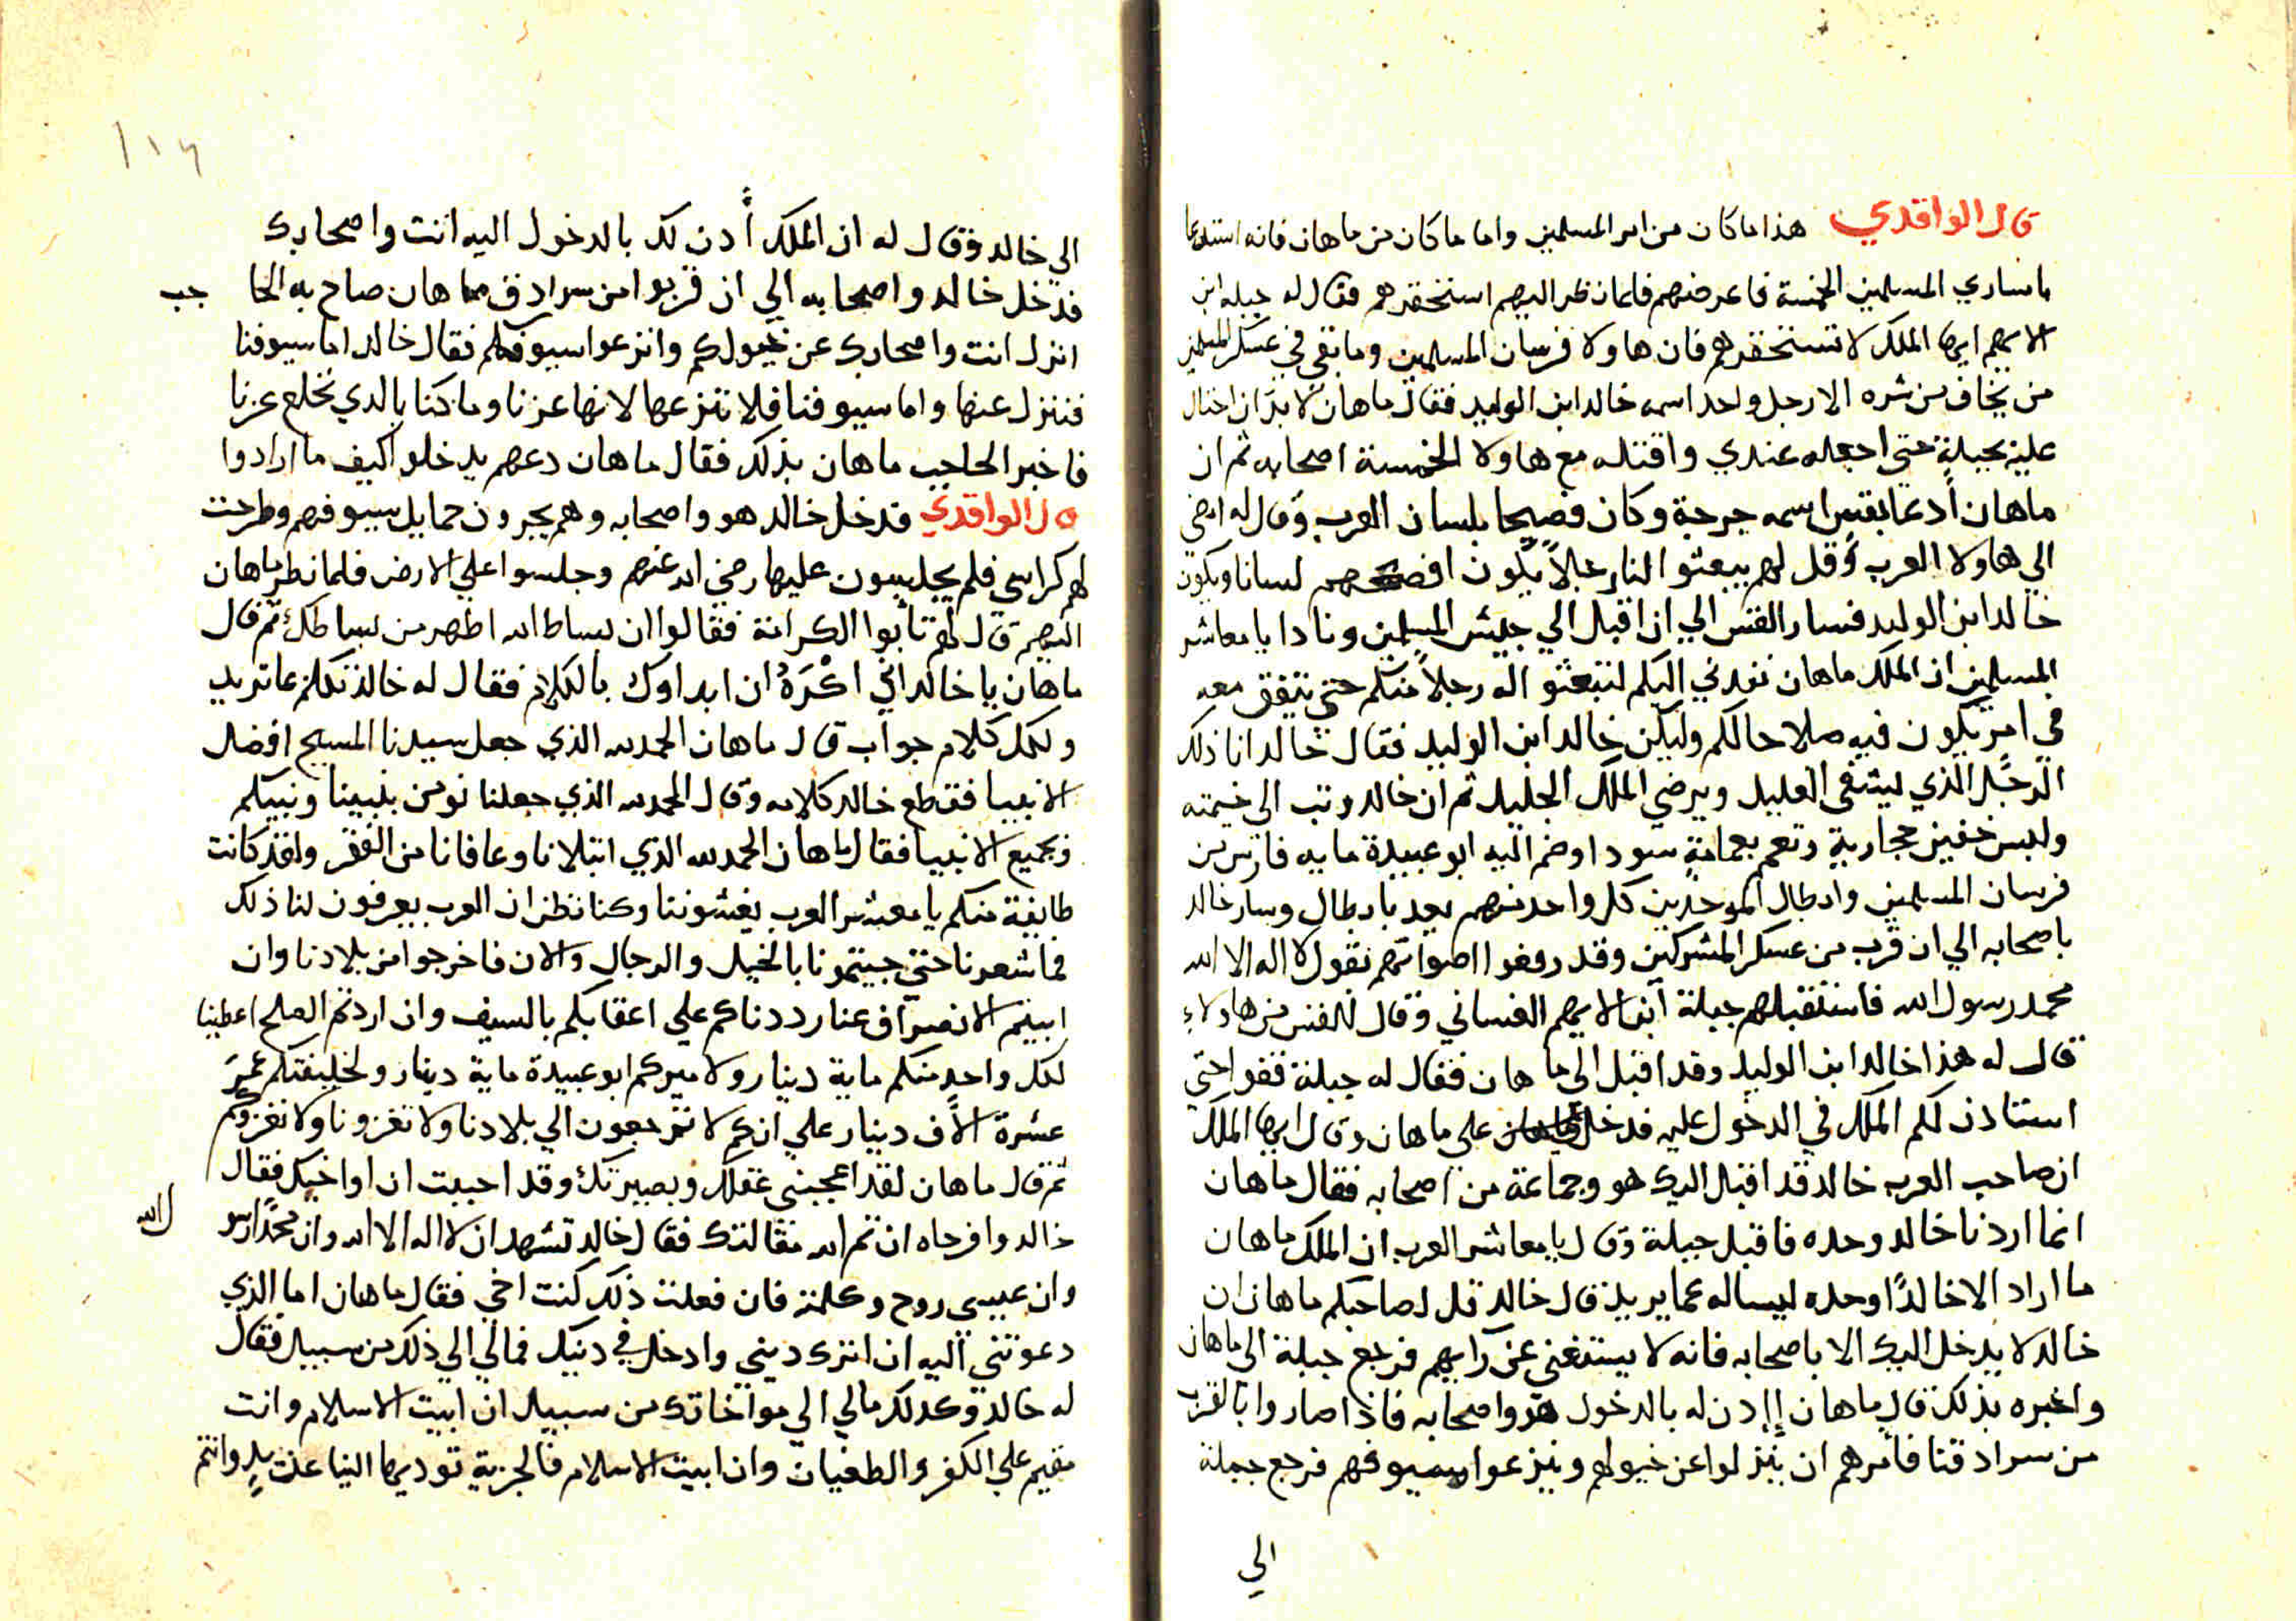 قال الواقدي هذا ما كان من امر المسلمين واما ما كان من ماهان فانه استدعا
باساري المسلمين الخمسة فاعرضهم فلما نظر اليهم استحقرهم فقال له جبله ابن
الايهم ايها الملك لا تستحقرهم فان هاولا فرسان المسلمين وما بقي في عسكر المسلمين
من يخاف من شره الا رجل واحد اسمه خالد ابن الوليد فقال ماهان لا بد ان احتال
عليه بحيلة حتي اجعله عندي واقتله مع هاولا الخمسة اصحابه ثم ان
ماهان أدعا بقس اسمه جرجة وكان فصيحا بلسان العرب وقال له امضي
الي هاولا العرب وقل لهم يبعثو النار جلاً يكون افصحهم لسانا ويكون
خالد ابن الوليد فسار القس الي ان اقبل الي جيش المسلمين ونادا يا معاشر
المسلمين ان الملك ماهان نفدني اليكم لتبعثو اله رجلاً منكم حتي يتفق معه
في امر يكون فيه صلاحا لكم وليكن خالد ابن الوليد فقال خالد انا ذلك
الرجل الذي ليشفي العليل ويرضي الملك الجليل ثم ان خالد وتب الي خيمته
ولبس خفين حجازية وتعمم بعمامة سودا وضم اليه ابو عبيدة مايه فارس من
فرسان المسلمين وابطال الموحدين كل واحد منهم يعد بابطال وسار خالد
باصحابه الي ان قرب من عسكر المشركين وقد رفعوا اصواتهم بقول لا اله الا الله
محمد رسول الله فاستقبلهم جبلة ابن الايهم الغساني وقال للقس من هاولاء
قال له هذا خالد ابن الوليد وقد اقبل الي ماهان فقال له جبلة قفوا حتي
استاذن لكم الملك في الدخول عليه فدخل علي ماهان وقال ايها الملك
ان صاحب العرب خالد قد اقبل اليك هو وجماعة من اصحابه فقال ماهان
انما اردنا خالد وحده فاقبل جبلة وقال يا معاشر العرب ان الملك ماهان
ما اراد الا خالدًا وحده ليساله عما يريد قال خالد قل لصاحبكم ماهان ان
خالد لا يدخل اليك الا باصحابه فانه لا يستغني عن رايهم فرجع جبلة الي ماهان
واخبره بذلك قال ماهان إإدن له بالدخول هو واصحابه فاذا صاروا بالقرب
من سرادقنا فأمرهم ان ينزلوا عن خيولهم وينزعوا سيوفهم فرجع جبلة
الي
١١٦
الي خالد وقال له ان الملك أدن لك بالدخول اليه انت واصحابك
فدخل خالد واصحابه الي ان قربوا من سرادق ماهان صاح به الحا جب
انزل انت واصحابك عن خيولكم وانزعوا سيوفكم فقال خالد اما سيوفنا
فننزل عنها واما سيوفنا فلا ننزعها لانها عزنا وما كنا بالدي نخلع عزنا
فاخبر الحاجب ماهان بذلك فقال ماهان دعهم يدخلوا كيف ما ارادوا
قال الواقدي فدخل خالد هو واصحابه وهم يجرون حمايل سيوفهم وطرحت
لهم كراسي فلم يجلسون عليها رضي الله عنهم وجلسوا علي الارض فلما نظر ماهان
اليهم قال لهم تأبوا الكرامة فقالوا ان بساط الله اطهر من بساطك ثم قال
ماهان يا خالد اني اكْرَهُ ان ابداوك بالكلام فقال له خالد تكلم عما تريد
ولكل كلام جواب قال ماهان الحمد لله الذي جعل سيدنا المسيح افضل
الانبيا فقطع خالد كلامه وقال الحمد لله الذي جعلنا نومن بنبينا ونبيكم
وبجميع الانبيا فقال ماهان الحمد لله الذي ابتلانا وعافانا من الفقر ولقد كانت
طايفة منكم يا معشر العرب يغشوننا وكنا نظن ان العرب يعرفون لنا ذلك
فما شعرنا حتي جيتمونا بالخيل والرجال والان فاخرجوا من بلادنا وان
ابيتم الانصراف عنا رددناكم علي اعقابكم بالسيف وان اردتم الصلح اعطينا
لكل واحد منكم ماية دينار ولاميركم ابو عبيدة ماية دينار ولخليفتكم عمر
عشرة الاف دينار علي انكم لا ترجعون الي بلادنا ولا تغزونا ولا نغزوكم
ثم قال ماهان لقد اعجبني عقلك وبصيرتك وقد احببت ان اواخيك فقال
خالد وافرحاه ان تم الله مقالتك فقال خالد تشهد ان لا اله الا الله وان محمدًا رسو ل الله
وان عيسي روح وكلمة فان فعلت ذلك كنت اخي فقال ماهان اما الذي
دعوتني اليه ان اترك ديني وادخل في دينك فمالي الي ذلك من سبيل فقال
له خالد وكدلك مالي الي مواخاتك من سبيل ان ابيت الاسلام وانت
مقيم علي الكفر والطغيان وان ابيت الاسلام فالجزية توديها الينا عن يدٍ وانتم